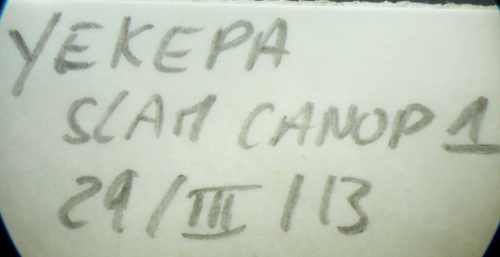 YEKEPA
SLAM CANOP 1
29/III/13